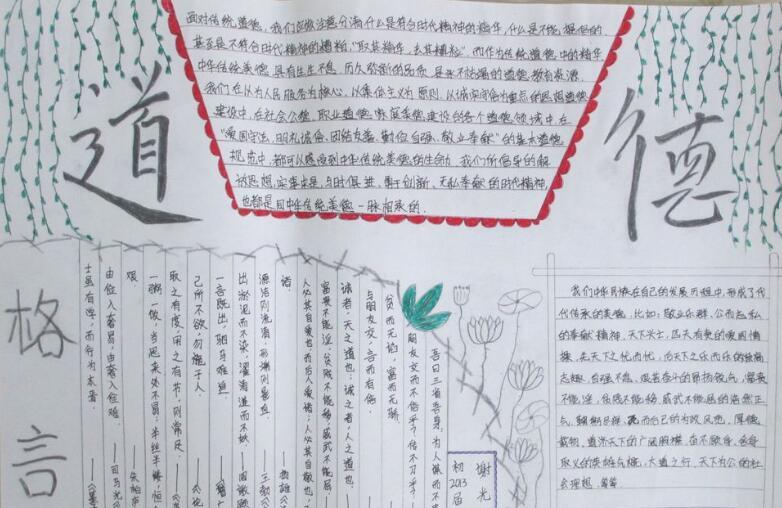 道
德
面对传统道德，我们应做注意分清什么是符合时代精神的精华，什么是不能提倡的
甚至是不符合时代精神的糟粕，"取其精华，去其糟粕"。而作为传统道德中的精华
中华传统美德，具有生生不息、历久弥新的品质，是
我们在以为人民服务为核心，以集体主义为原则，以诚实守信为重点的思想道德
建设中，在社会公德、职业道德、家庭美德建设的各个道德领域中，在
"爱国守法、明礼诚信、团结友善、勤俭自强、敬业奉献"的基本道德
规范中，都可以感受到中华传统美德的生命力。我们所倡导的解
放思想、实事求是、与时俱进、勇于创新、无私奉献的时代精神，
也都是与中华传统美德一脉相承的。
格言
吾日三省吾身，为人谋而不
朋友交而不信乎？传不习乎？
贫而无谄，富而无骄
与朋友交，言而有信
诚者，天之道也；诚之者，人之道也。
富贵不能淫，贫贱不能移，威武不能屈
人必其自爱也而后人爱诸；人必其自敬也，
诸
源洁则流清，形端则影直。
出淤泥而不染，濯清涟而不妖
一言既出，驷马难追
己所不欲，勿施于人。
取之有度，用之有节，则常足。
一粥一饭，当思来处不易；半丝半缕，恒
艰
由俭入奢易，由奢入俭难。
士虽有学，而行为本焉
谢光
初2013届
我们中华民族在自己的发展历程中，形成了代
代传承的美德，比如，敬业乐群、公而忘私
的奉献精神，天下兴亡，匹夫有责的爱国情
操，先天下之忧而忧，后天下之乐而乐的崇高
志趣，自强不息、艰苦奋斗的昂扬锐气，富贵
不能淫，贫贱不能移，威武不能屈的浩然正
气，厚德
载物、道济天下的广阔胸襟，奋不顾身、舍身
取义的英雄气概，大道之行、天下为公的社
会理想，等等